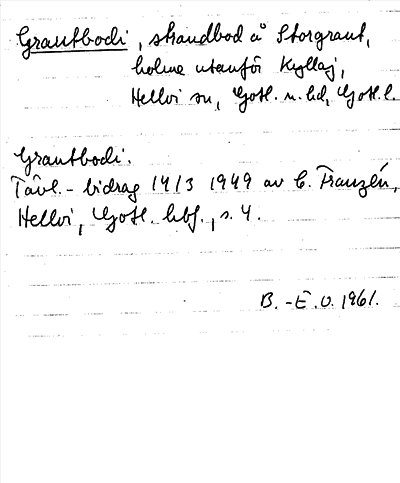 Grautbodi, strandbod å Storgraut,
holme utanför Kyllaj,
Hellvi sn, Gotl. n. hd, Gotl. l.
Grautbodi.
Tävl.-bidrag 14/3 1949 av C. Franzén,
Hellvi, Gotl. hbf., s. 4.
B.-E. O. 1961.